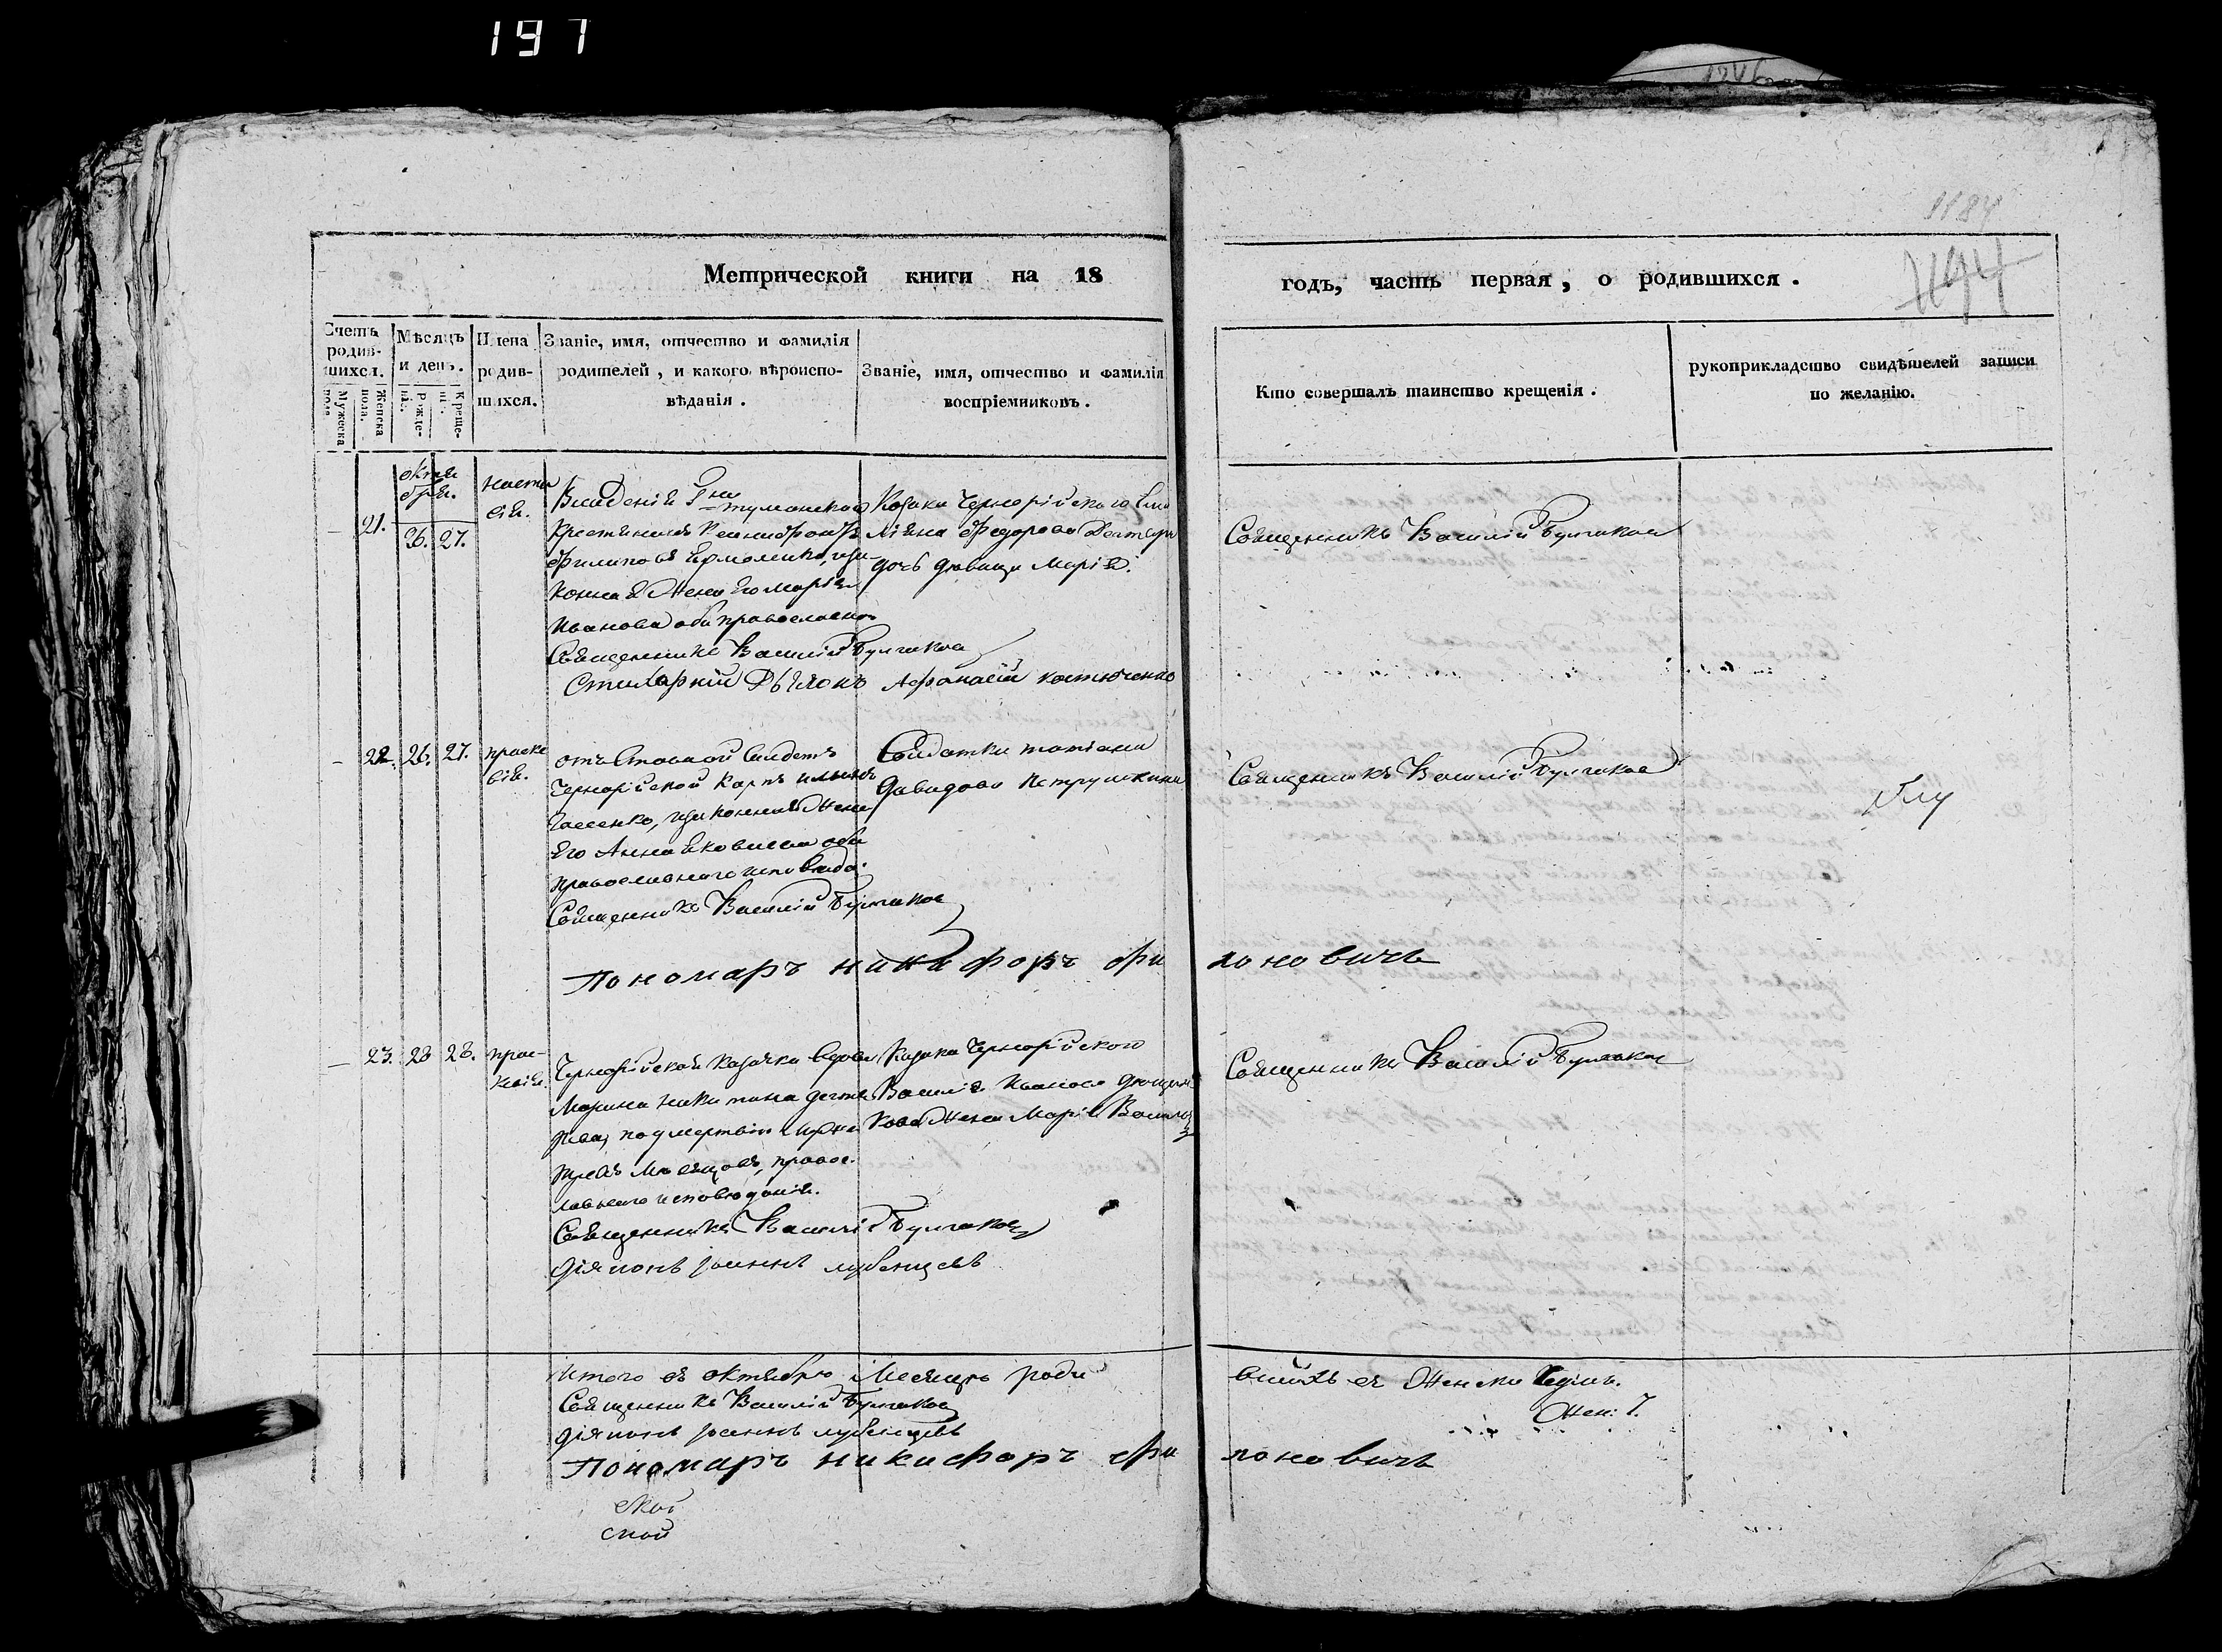 197
1184
Метрической книги на 18
годъ, часть первая, о родившихся.
Счетъ родив-шихся.
Мужеска пола.
Женска пола.
Мѣсяцъ и день.
Рожде-нія.
Креще-нія.
Имена родив-шихся.
Званіе, имя, отчество и фамилія
родителей, и какого вѣроиспо-
вѣданія.
Званіе, имя, отчество и фамилія
воспріемниковъ.
Кто совершалъ таинство крещенія.
рукоприкладство свидѣтелей записи
по желанію.
октя
бря.
21. 26. 27.
Наста
сія.
Владенія Гна Туманскаго
Крестьянинъ
Филиповъ Ермоленко, иза-
конная жена его Марія
Иванова оба православно
Священникъ Василій Булгаковъ
Стихарный Дьячокъ Афанасій Костюченко
Козака Чернорійского Еме
ліяна Федорова Дехтяря
дочь дѣвица Марія.
Священникъ Василій Булгаковъ
22. 26. 27.
Праске
вія.
отъставной Салдатъ
Чернорійской Карпъ Ильинъ
изаконная жена
Его Анна Яковлева оба
православного исповѣда:
Священникъ Василій Булгаковъ
Пономарь Никифоръ Фи
лоновичъ
Солдатка Татіана
Давидова Петрушкина
Священникъ Василій Булгаковъ
23. 28 28.
Прас-
ковія
Чернорійской козачки вдова
Марина Никитина Дехтя
рева, по умертвіи мужа
трехъ мѣсяцовъ, правос-
лавного исповѣданія.
Священникъ Василій Булгаковъ
Діяконъ Іоаннъ Лубенцевъ
Козака Чернорійского
Василія Иванова
кова жена Марія Васильева
Священникъ Василій Булгаковъ
Итого въ октябрѣ Месяцѣ роди
вшихъся Женска
Жен: 7.
Священникъ Василій Булгаковъ
Діяконъ Іоаннъ Лубенцевъ
Пономарь Никифоръ Фи
лоновичъ
ской
ской